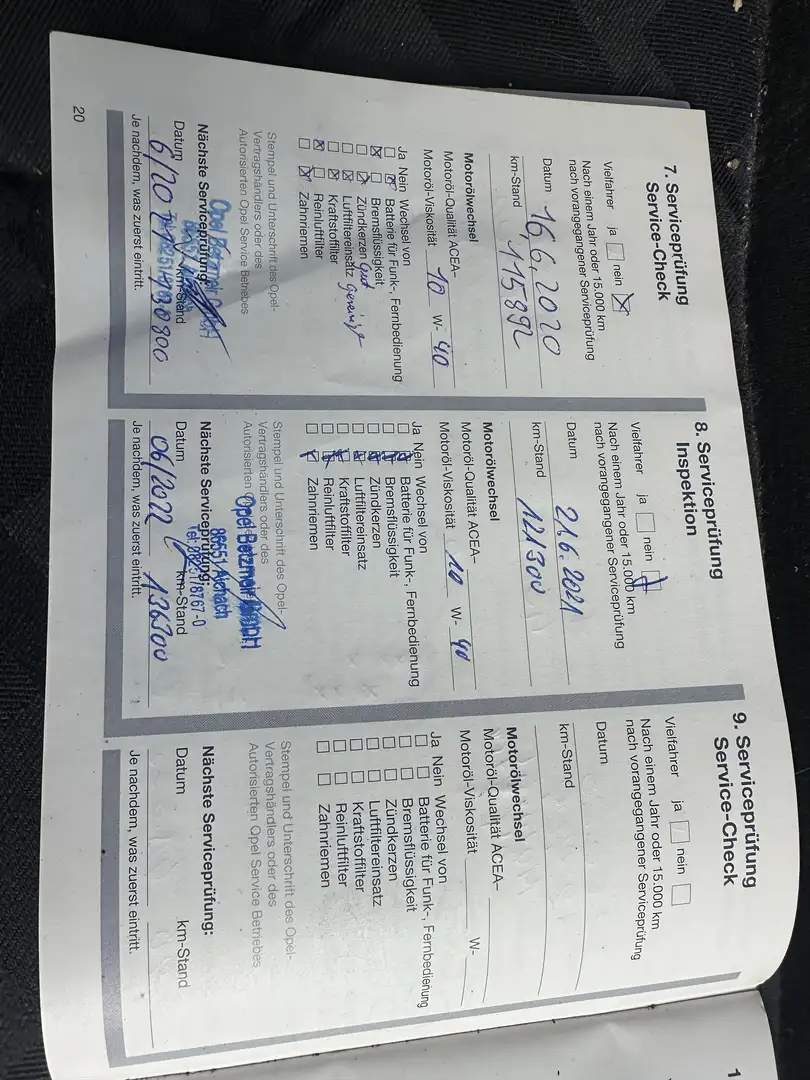 7. Serviceprüfung
Service-Check
Vielfahrer ja nein
Nach einem Jahr oder 15.000 km
nach vorangegangener Serviceprüfung
Datum 16.6.2020
km-Stand 115892
Motorölwechsel
Motoröl-Qualität ACEA-
Motoröl-Viskosität 10 W- 40
Ja Nein Wechsel von
Batterie für Funk-, Fernbedienung
Bremsflüssigkeit
Zündkerzen
Luftfiltereinsatz gereinigt
Kraftstoffilter
Reinluftfilter
Zahnriemen
Stempel und Unterschrift des Opel-
Vertragshändlers oder des
Autorisierten Opel Service Betriebes
Opel Betzmeir GmbH
Nächste Serviceprüfung:
Datum km-Stand
Je nachdem, was zuerst eintritt.
20
8. Serviceprüfung
Inspektion
Vielfahrer ja nein
Nach einem Jahr oder 15.000 km
nach vorangegangener Serviceprüfung
Datum 21.6.2021
km-Stand 121300
Motorölwechsel
Motoröl-Qualität ACEA-
Motoröl-Viskosität 10 W- 40
Ja Nein Wechsel von
Batterie für Funk-, Fernbedienung
Bremsflüssigkeit
Zündkerzen
Luftfiltereinsatz
Kraftstoffilter
Reinluftfilter
Zahnriemen
Stempel und Unterschrift des Opel-
Vertragshändlers oder des
Autorisierten Opel Betzmeir GmbH
86551 Aichach
Nächste Serviceprüfung:
Tel. 08251/8767-0
Datum 06/2022 km-Stand 136300
Je nachdem, was zuerst eintritt.
9. Serviceprüfung
Service-Check
Vielfahrer ja nein
Nach einem Jahr oder 15.000 km
nach vorangegangener Serviceprüfung
Datum
km-Stand
Motorölwechsel
Motoröl-Qualität ACEA-
Motoröl-Viskosität W-
Ja Nein Wechsel von
Batterie für Funk-, Fernbedienung
Bremsflüssigkeit
Zündkerzen
Luftfiltereinsatz
Kraftstoffilter
Reinluftfilter
Zahnriemen
Stempel und Unterschrift des Opel-
Vertragshändlers oder des
Autorisierten Opel Service Betriebes
Nächste Serviceprüfung:
Datum km-Stand
Je nachdem, was zuerst eintritt.
1